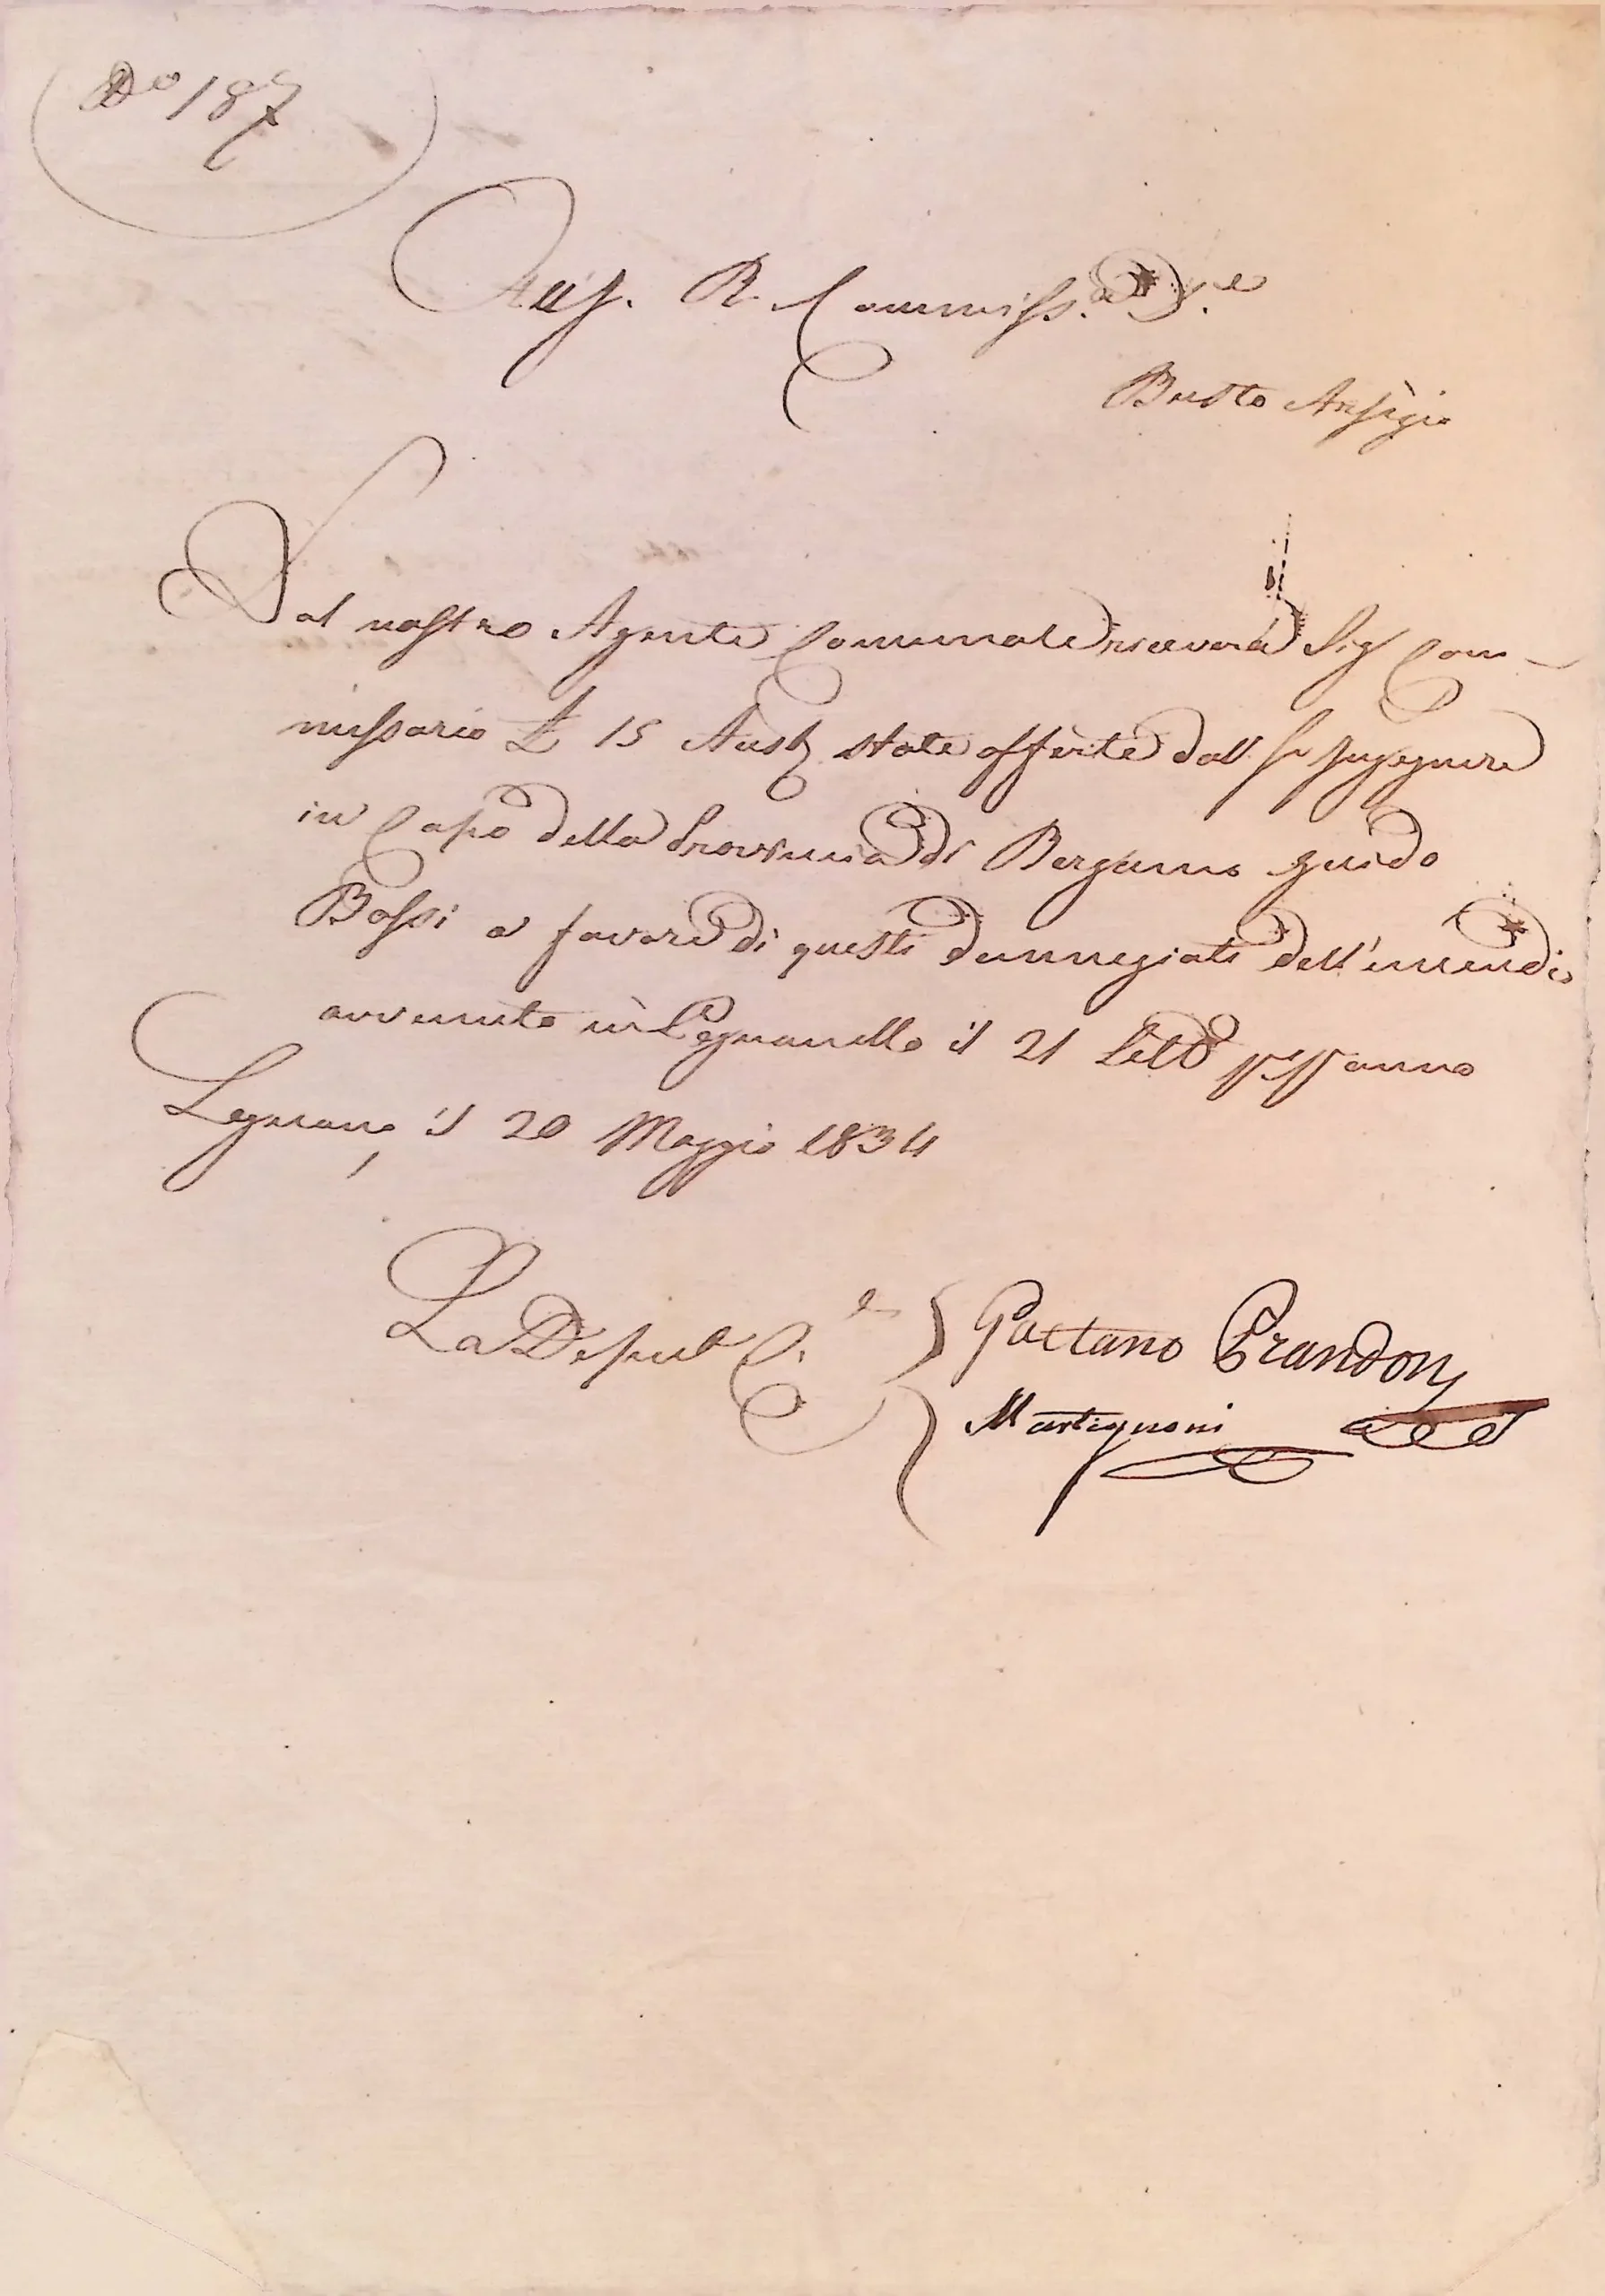 N° 187
All'I. R. Commiss.° D.le
Busto Arsizio
Dal nostro Agente Comunale riceverà Sig Com-
missario £ 15 Aust. state offerte dall Sr Ingegnere
in Capo della Provincia di Bergamo Guido
Bossi a favore di questi dannegiati dell'incendio
avvenuto in Legnanello il 21 anno
Legnano il 20 Maggio 1834
La Deput C.le
Gaetano Prandoni
Martignoni